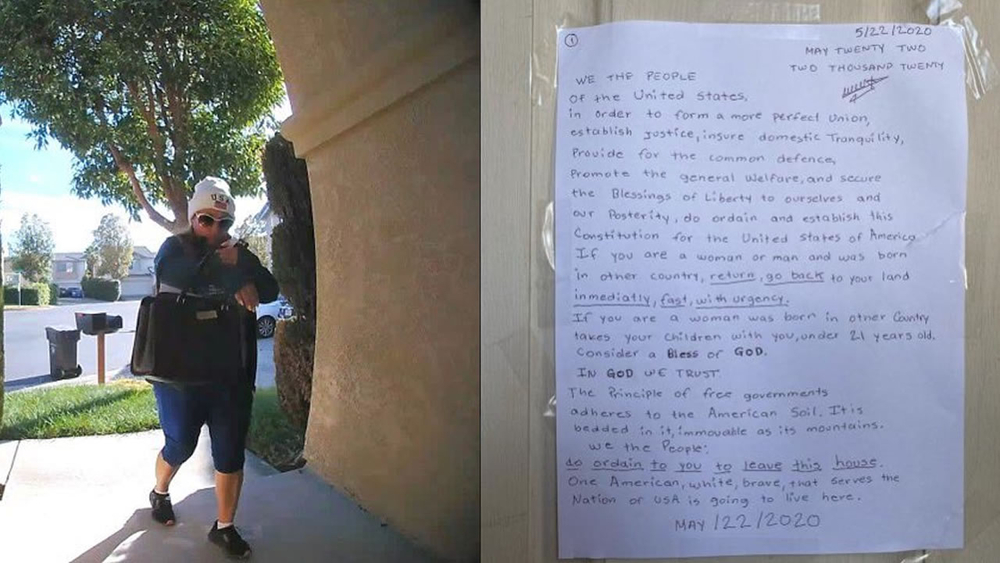 USA
①
5/22/2020
MAY TWENTY TWO
TWO THOUSAND TWENTY
WE THE PEOPLE
Of the United States,
in order to form a more perfect Union,
establish justice, insure domestic Tranquility,
Provide for the common defence,
Promote the general Welfare, and secure
the Blessings of Liberty to ourselves and
our Posterity, do ordain and establish this
Constitution for the United States of America
If you are a woman or man and was born
in other country, return, go back to your land
inmediatly, fast, with urgency.
If you are a woman was born in other Country
takes your children with you, under 21 years old.
Consider a Bless of GOD.
IN GOD WE TRUST
The Principle of free governments
adheres to the American Soil. It is
bedded in it, immovable as its mountains.
We the People:
do ordain to you to leave this house.
One American, white, brave, that serves the
Nation of USA is going to live here.
MAY /22/2020